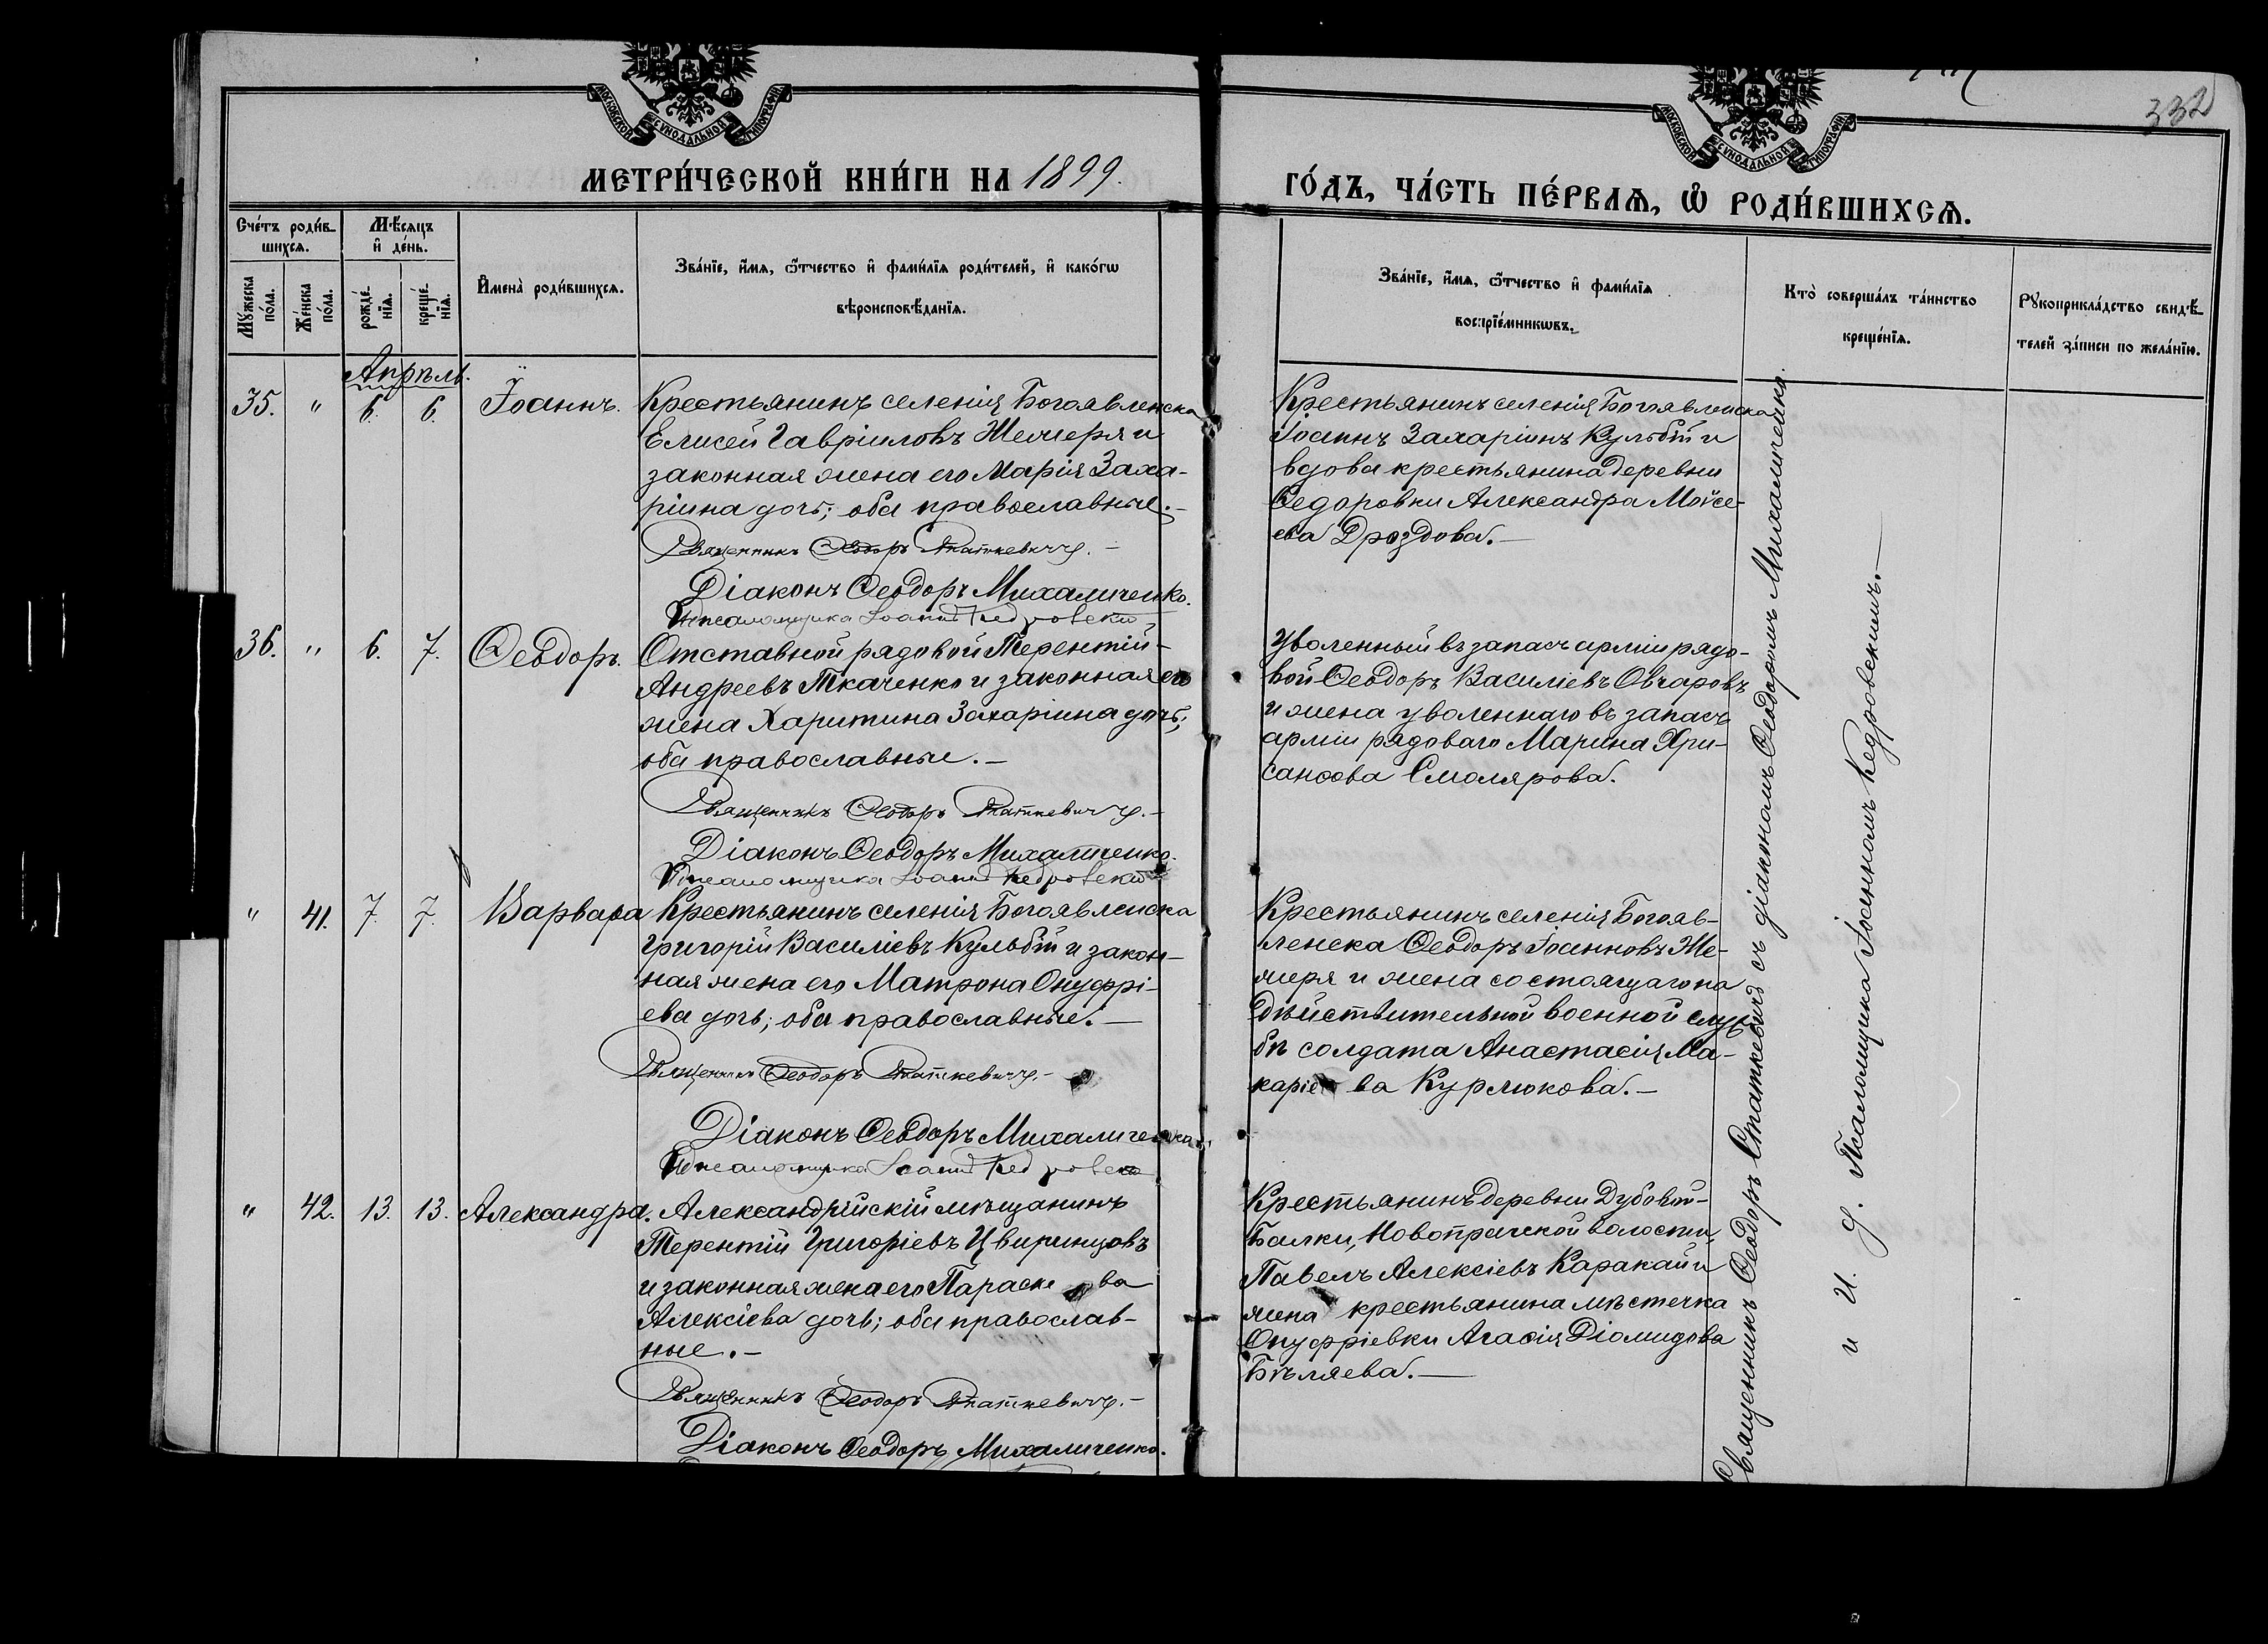 332
МОСКОВСКОЙ СѴНОДАЛЬНОЙ ТИПОГРАФІИ
МОСКОВСКОЙ СѴНОДАЛЬНОЙ ТИПОГРАФІИ
МЕТРИ́ЧЕСКОЙ КНИ́ГИ НА 1899.
ГО́ДЪ, ЧА́СТЬ ПЕ́РВАѦ, Ѡ҆ РОДИ́ВШИХСѦ.
Сче́тъ роди́в-
шихсѧ.
Мѣ́сѧцъ
и҆ де́нь.
Мꙋ́жеска
по́ла.
Же́нска
по́ла.
рожде́-
нїѧ.
креще́-
нїѧ.
И҆мена̀ роди́вшихсѧ.
Зва́нїе, и҆́мѧ, ѻ҆́тчество и҆ фами́лїѧ роди́телей, и҆ како́гѡ
вѣроисповѣ́данїѧ.
Зва́нїе, и҆́мѧ, ѻ҆́тчество и҆ фами́лїѧ
воспрїе́мникѡвъ.
Кто̀ соверша́лъ та́инство
креще́нїѧ.
Рꙋкоприкла́дство свидѣ́-
телей за́писи по жела́нїю.
Апрѣль.
35. " 6. 6. Іоаннъ.
Крестьянинъ селенія Богоявленска
Елисей Гавріиловъ Жемеря и
законная жена его Марія Заха-
ріина дочь; оба православные.-
Священникъ Ѳеодоръ Статкевичъ.-
Діаконъ Ѳеодоръ Михаличенко.
И. д. псаломщика Іоаннъ Кедровскій
Крестьянинъ селенія Богоявленска
Іоаннъ Захаріинъ Кульбій и
вдова крестьянина деревни
Ѳедоровки Александра Мойсе-
ева Дроздова.-
36. " 6. 7. Ѳеодоръ.
Отставной рядовой Терентій
Андреевъ Ткаченко и законная его
жена Харитина Захаріина дочь;
оба православные.-
Священникъ Ѳеодоръ Статкевичъ.-
Діаконъ Ѳеодоръ Михаличенко.
И. д. псаломщика Іоаннъ Кедровскій
Уволенный въ запасъ арміи рядо-
вой Ѳеодоръ Василіевъ Овчаровъ
и жена уволеннаго въ запасъ
арміи рядоваго Марина Хри-
санѳова Смолярова.
" 41. 7. 7. Варвара
Крестьянинъ селенія Богоявленска
Григорій Василіевъ Кульбій и закон-
ная жена его Матрона Онуфрі-
ева дочь; оба православные.-
Священникъ Ѳеодоръ Статкевичъ.-
Діаконъ Ѳеодоръ Михаличенко.
И. д. псаломщика Іоаннъ Кедровскій
Крестьянинъ селенія Богояв-
ленска Ѳеодоръ Іоанновъ Же-
меря и жена состоящаго на
дѣйствительной военной служ-
бѣ солдата Анастасія Ма-
каріева Курлюкова.-
" 42. 13. 13. Александра.
Александрійскій мѣщанинъ
Терентій Григоріевъ Цвиринцовъ
и законная жена его Параскева
Алексіева дочь; оба православ-
ные.-
Священникъ Ѳеодоръ Статкевичъ.-
Діаконъ Ѳеодоръ Михаличенко.
Крестьянинъ деревни Дубовой-
Балки, Новопражской волости,
Павелъ Алексіевъ Каракай и
жена крестьянина мѣстечка
Онуфріевки Агаѳія Діомидова
Бѣляева.-
Священникъ Ѳеодоръ Статкевичъ съ діакономъ Ѳеодоромъ Михаличенко
и И. д. Псаломщика Іоанномъ Кедровскимъ.-